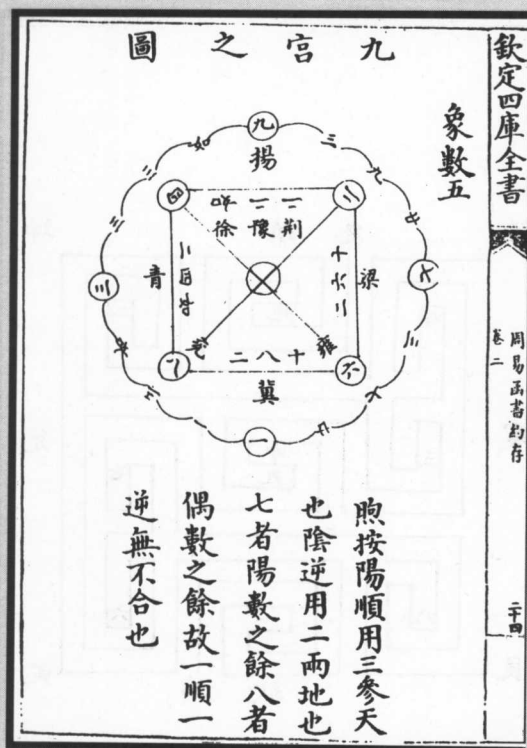 欽定四庫全書
周易函書約存
卷二
二十四
象數五
九宮之圖
九
揚
四
二
徐
豫
荆
三
青
梁
七
八
兗
雍
六
二八十
冀
一
煦按陽順用三參天
也陰逆用二兩地也
七者陽數之餘八者
偶數之餘故一順一
逆無不合也